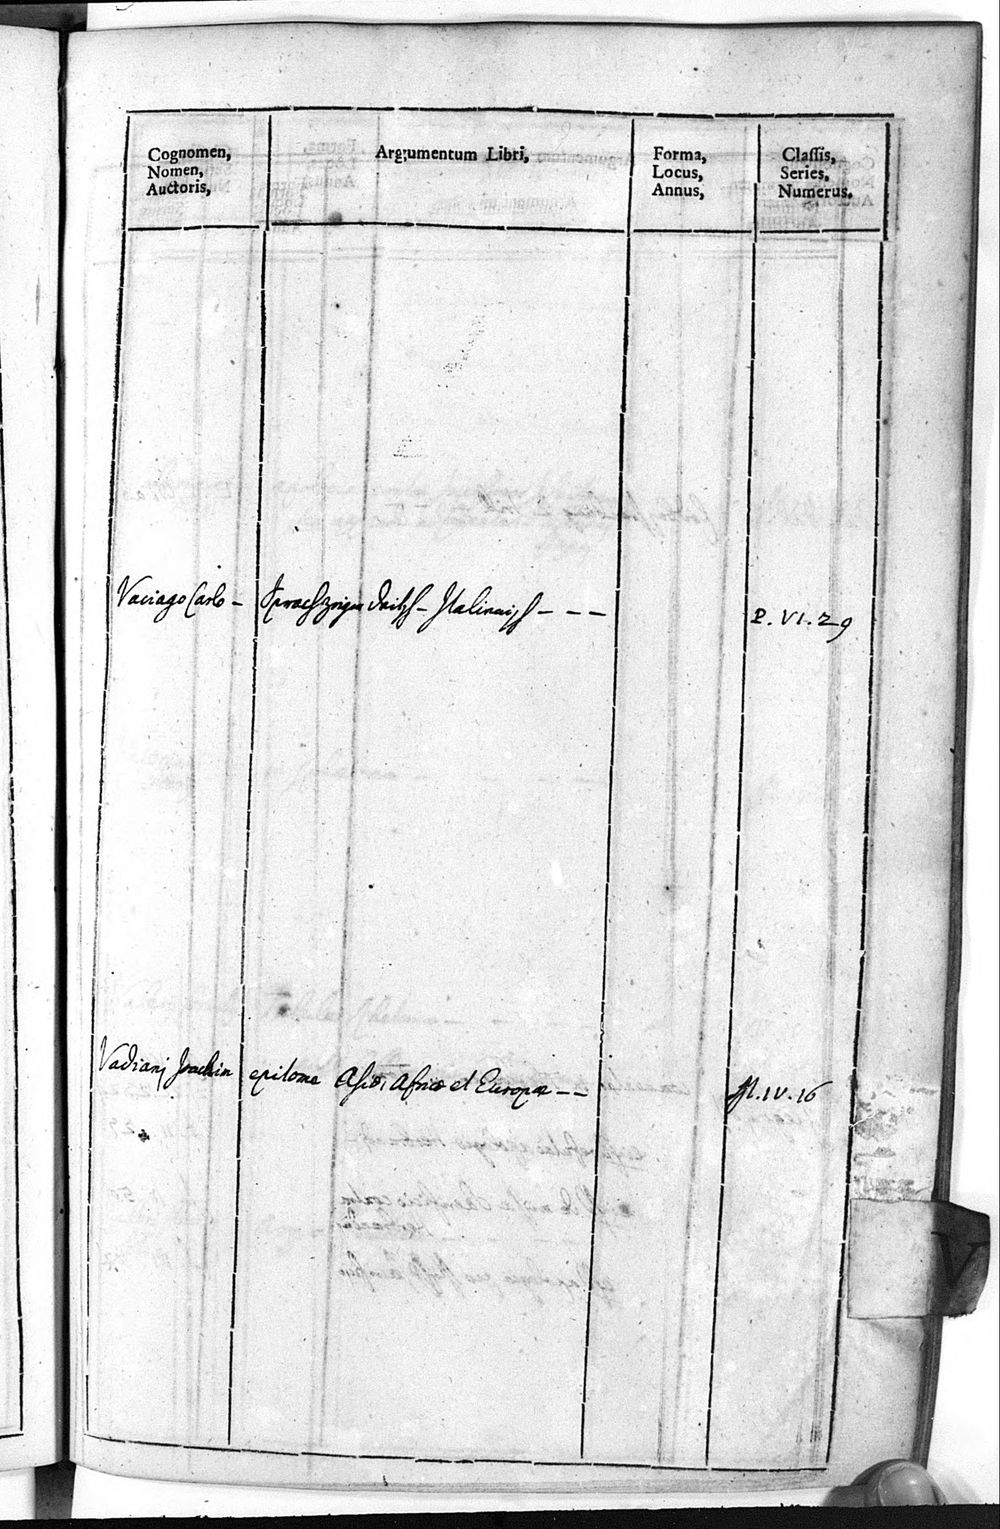 Cognomen,
Nomen,
Auctoris,
Argumentum Libri,
Forma,
Locus,
Annus,
Classis,
Series,
Numerus,
Vaciago Carlo – Sprachzeiger deitsch – Italienisch – – –
P. VI. 29
Vadiani Joachin epitome Asiæ, Africæ et Europæ – –
IV. 16
V